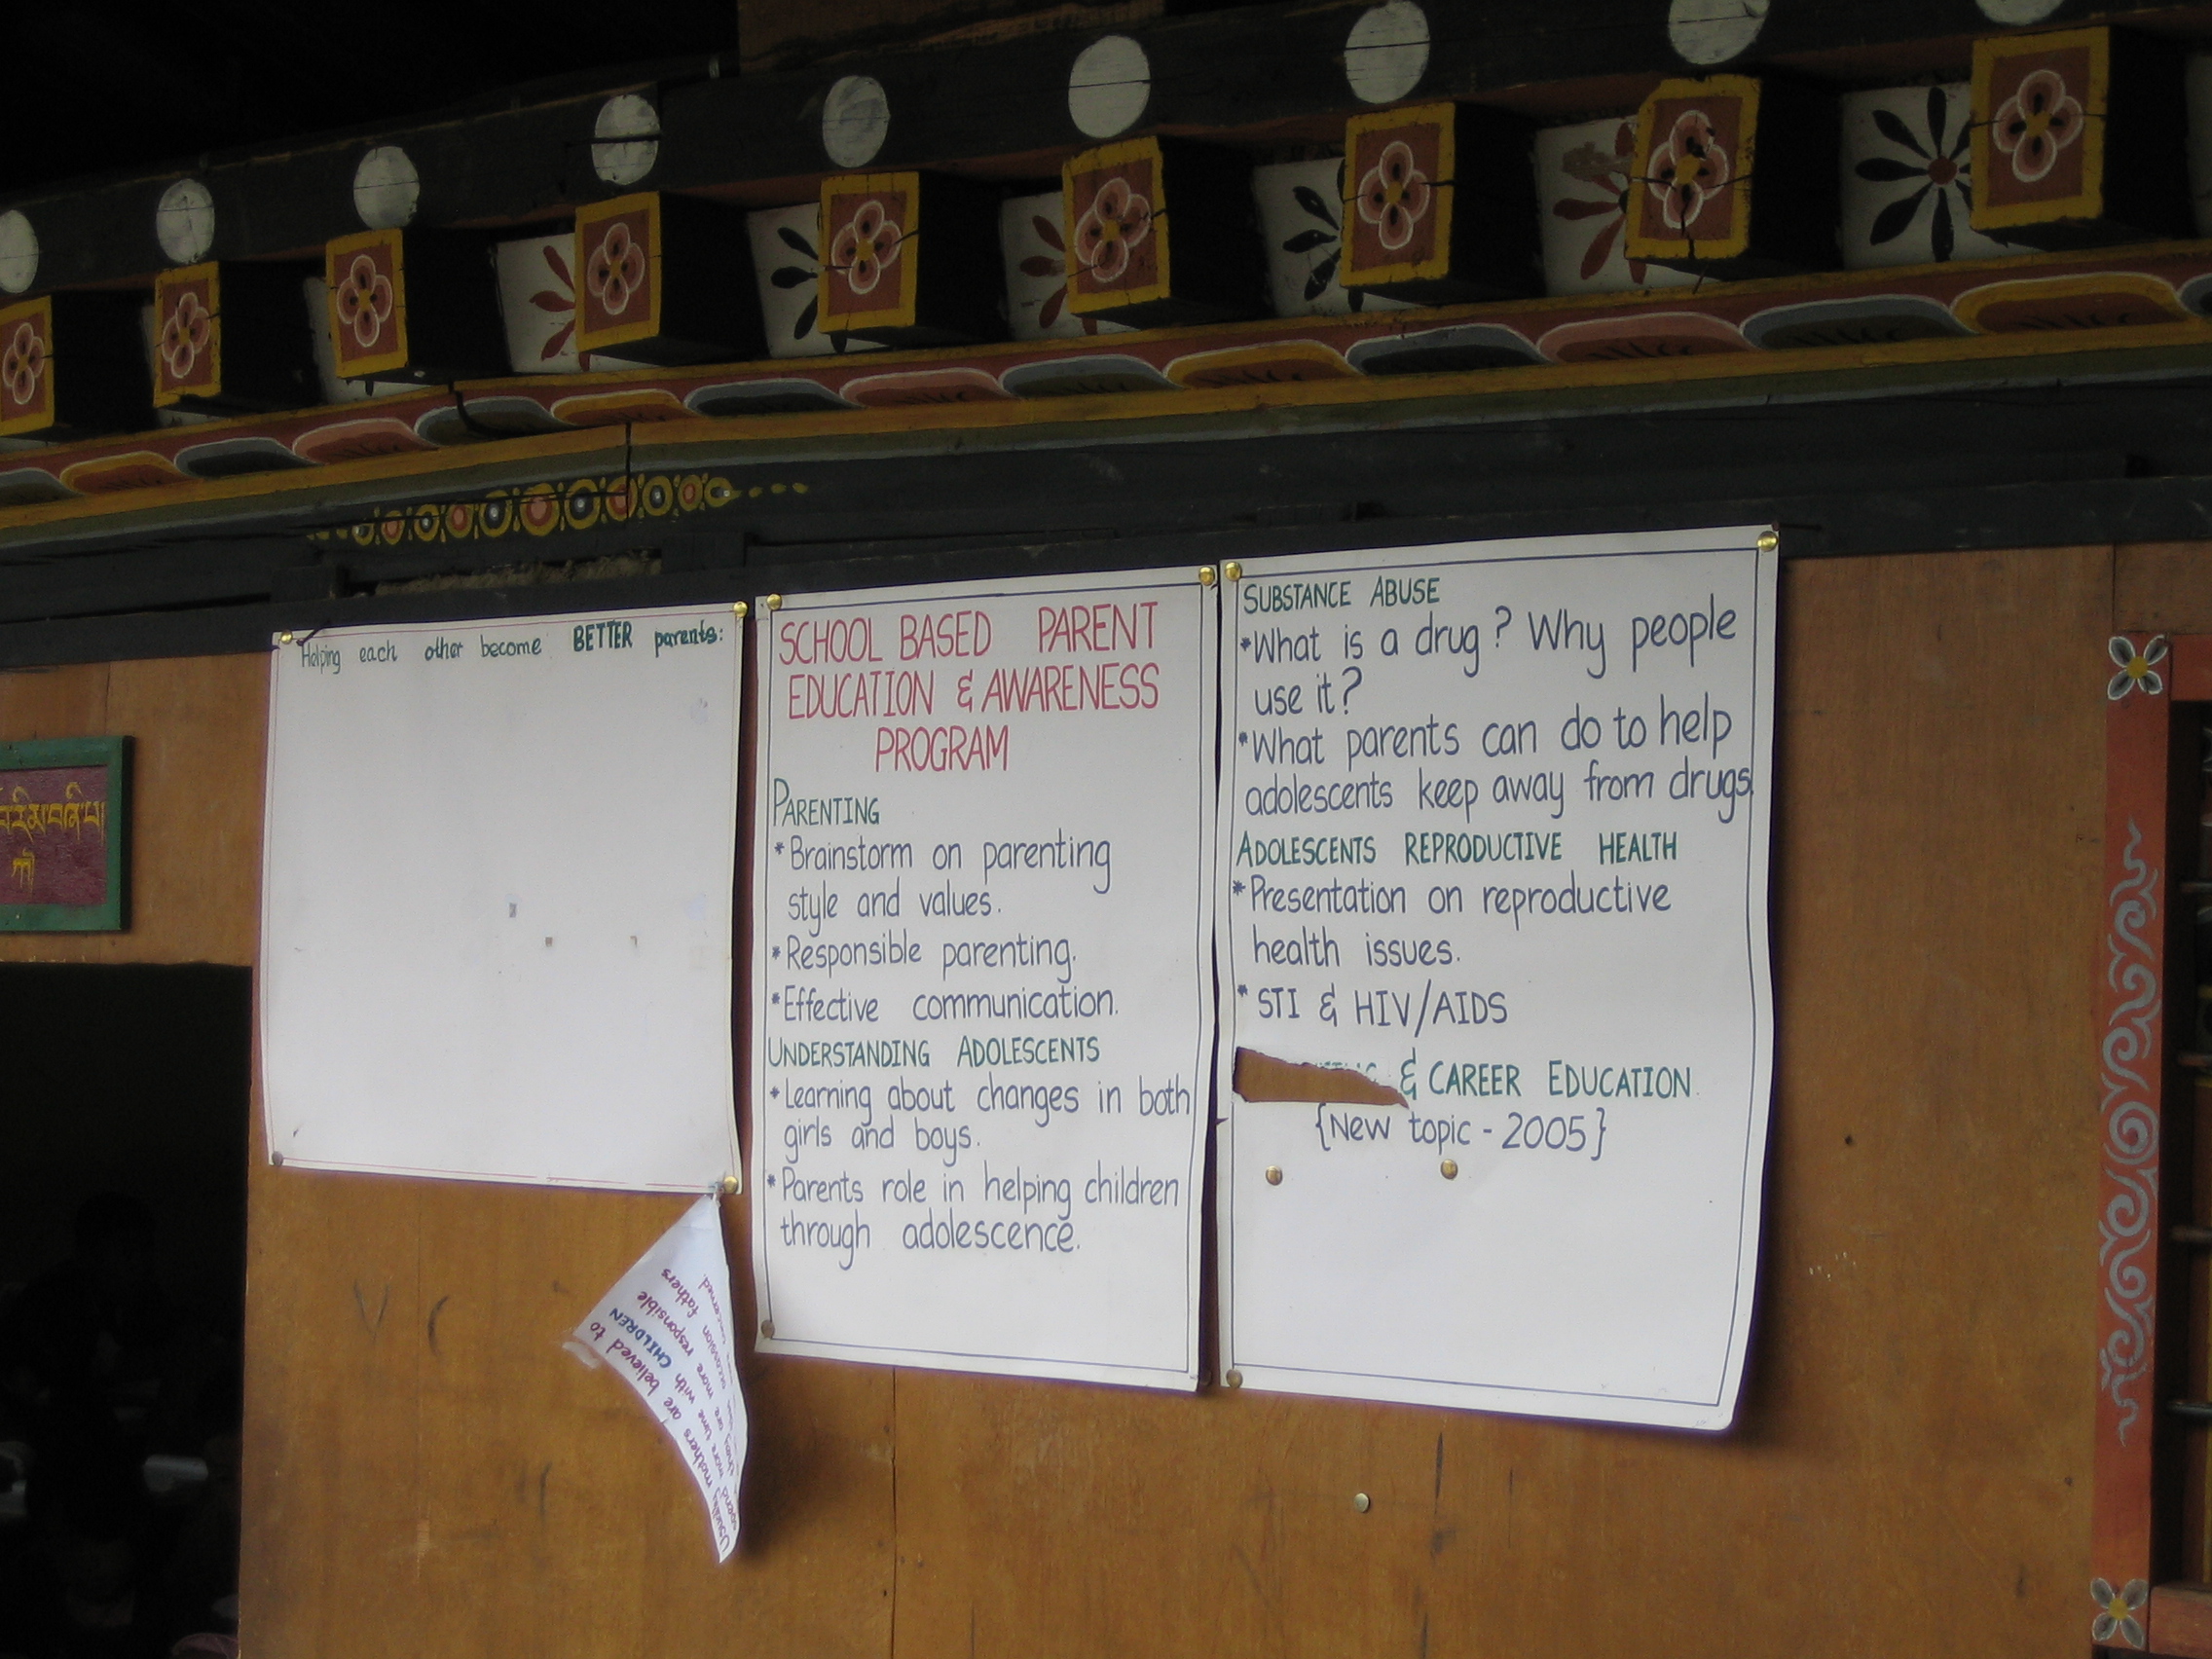 Helping each other become BETTER parents:
SCHOOL BASED PARENT
EDUCATION & AWARENESS
PROGRAM
PARENTING
*Brainstorm on parenting
style and values.
*Responsible parenting.
*Effective communication.
UNDERSTANDING ADOLESCENTS
*Learning about changes in both
girls and boys.
*Parents role in helping children
through adolescence.
SUBSTANCE ABUSE
*What is a drug? Why people
use it?
*What parents can do to help
adolescents keep away from drugs.
ADOLESCENTS REPRODUCTIVE HEALTH
*Presentation on reproductive
health issues.
*STI & HIV/AIDS
& CAREER EDUCATION.
{New topic - 2005}
Usually mothers are believed to
spend more time with CHILDREN
they are more responsible
fathers
concerned.